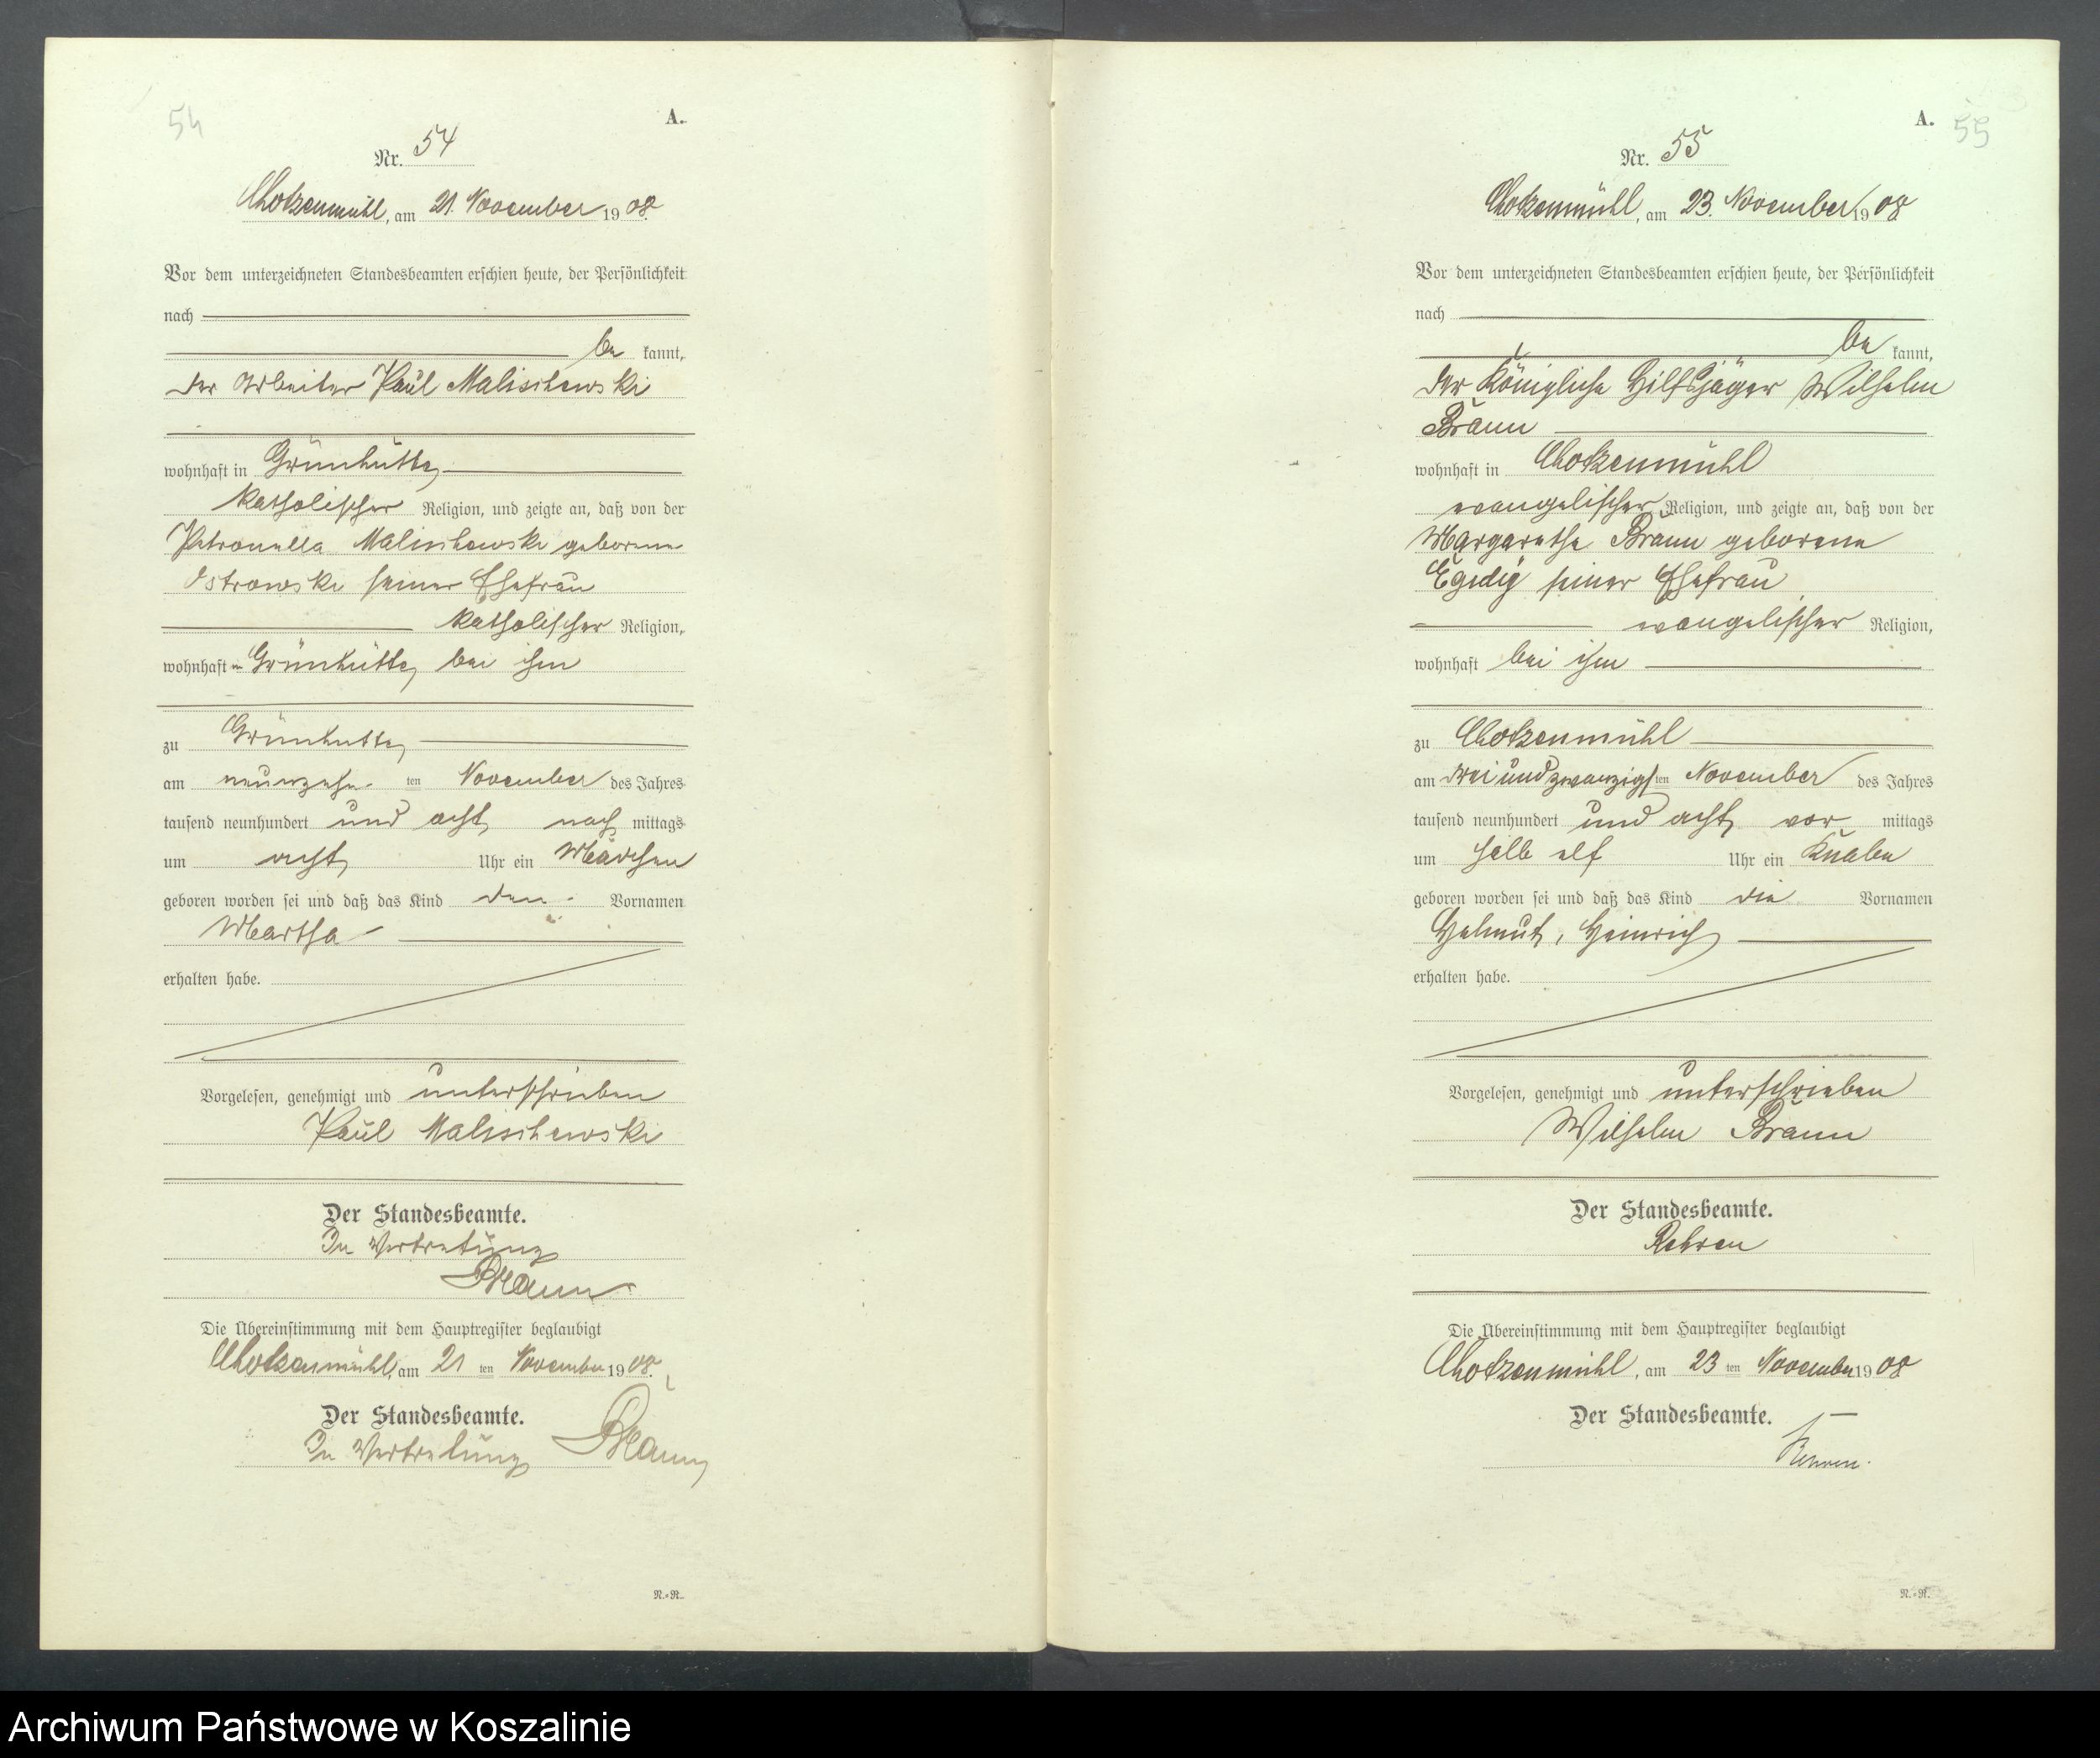 54
A.
Nr. 54
Chotzenmühl, am 21. November 1908.
Vor dem unterzeichneten Standesbeamten erschien heute, der Persönlichkeit
nach
be kannt,
der Arbeiter Paul Malischewski
wohnhaft in Grünhütte,
katholischer Religion, und zeigte an, daß von der
Petronella Malischewski geborene
Ostrowski seiner Ehefrau
katholischer Religion,
wohnhaft in Grünhütte, bei ihm
zu Grünhütte,
am neunzehn ten November des Jahres
tausend neunhundert und acht nach mittags
um acht Uhr ein Mädchen
geboren worden sei und daß das Kind den Vornamen
Martha
erhalten habe.
Vorgelesen, genehmigt und unterschrieben
Paul Malischewski
Der Standesbeamte.
In Vertretung
Die Übereinstimmung mit dem Hauptregister beglaubigt
Chotzenmühl, am 21 ten November 1908.
Der Standesbeamte.
In Vertretung
N.=R.
A.
55
Nr. 55
Chotzenmühl, am 23. November 1908
Vor dem unterzeichneten Standesbeamten erschien heute, der Persönlichkeit
nach
be kannt,
der Königliche Hilfsjäger Wilhelm
Braun
wohnhaft in Chotzenmühl
evangelischer Religion, und zeigte an, daß von der
Margarethe Braun geborene
Egidig seiner Ehefrau
evangelischer Religion,
wohnhaft bei ihm
zu Chotzenmühl
am dreiundzwanzigsten November des Jahres
tausend neunhundert und acht vor mittags
um halb elf Uhr ein Knabe
geboren worden sei und daß das Kind die Vornamen
Helmut, Heinrich
erhalten habe.
Vorgelesen, genehmigt und unterschrieben
Wilhelm Braun
Der Standesbeamte.
Rehren
Die Übereinstimmung mit dem Hauptregister beglaubigt
Chotzenmühl, am 23 ten November 1908
Der Standesbeamte.
Rehren.
N.=R.
Archiwum Państwowe w Koszalinie